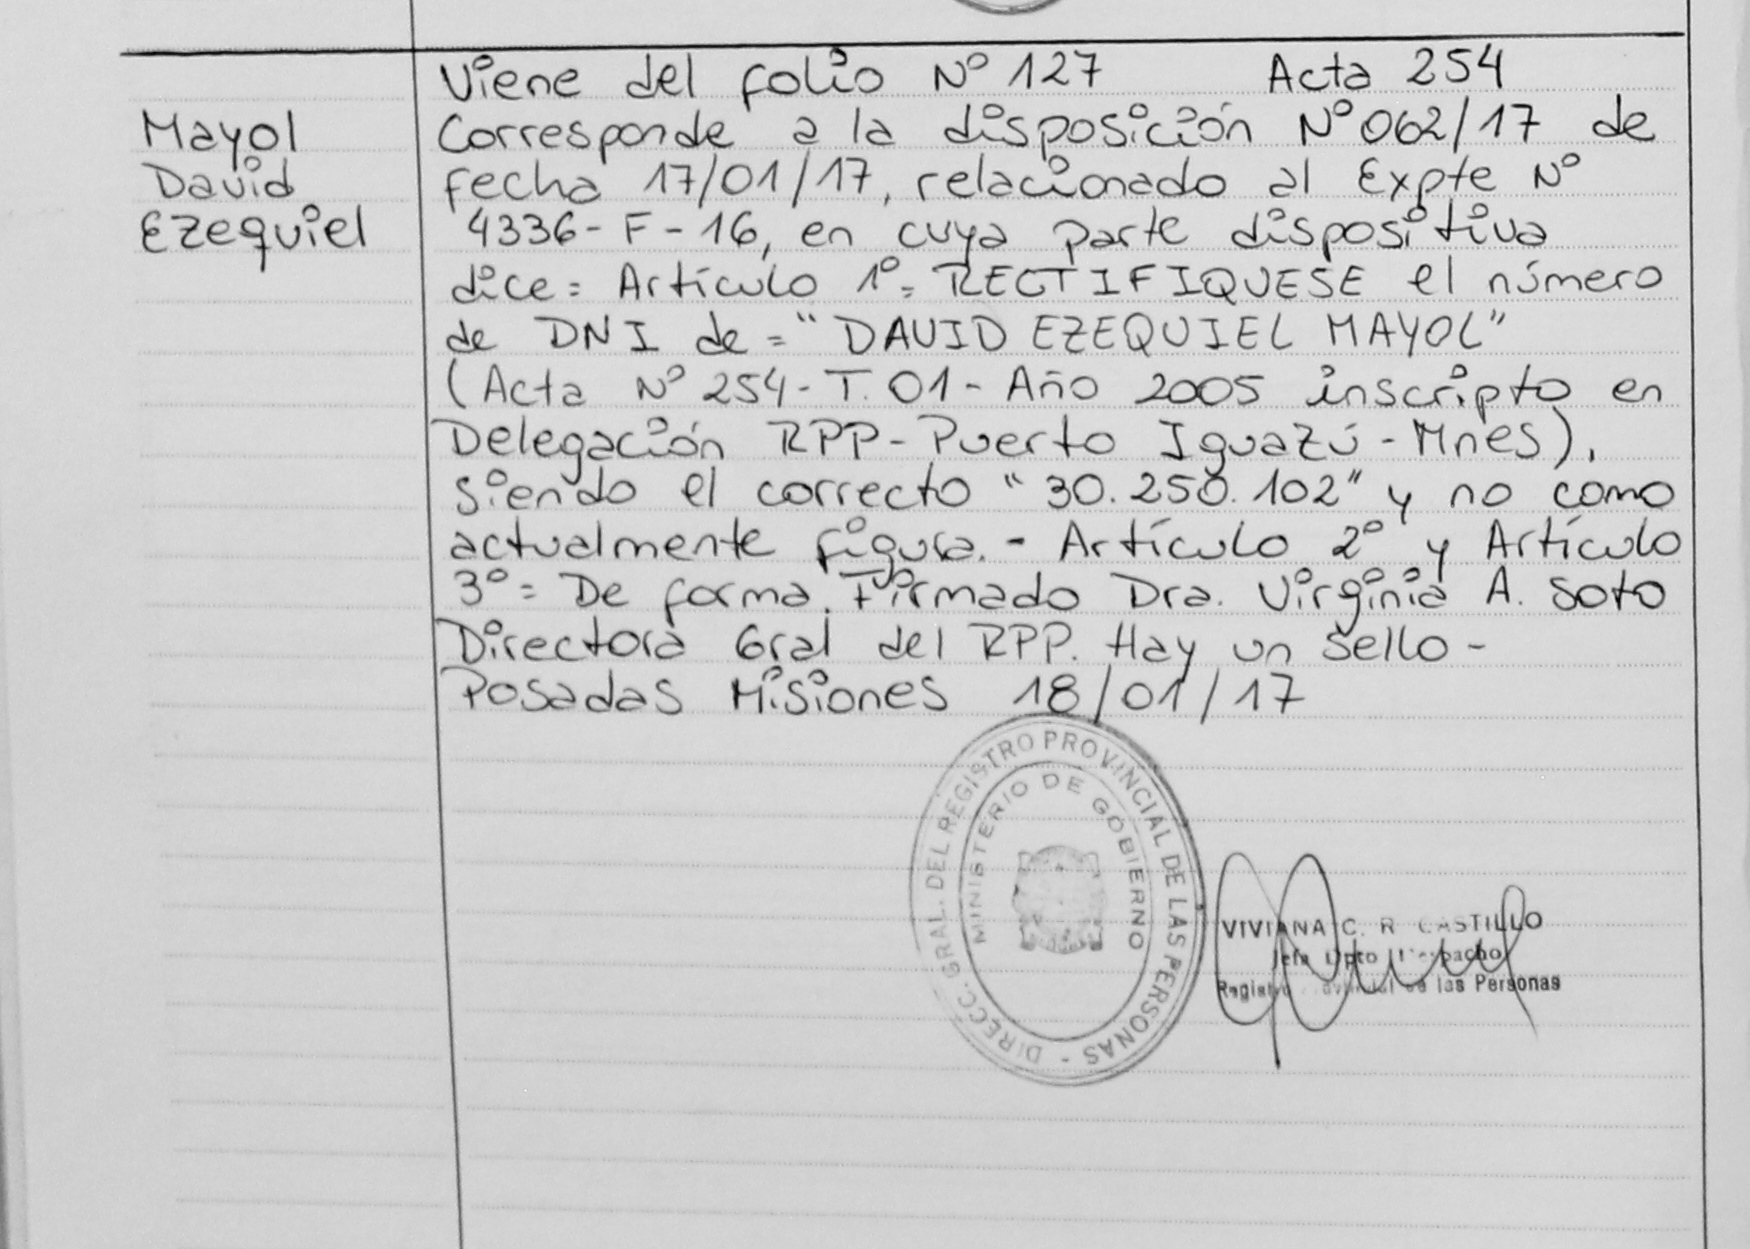 Viene del folio Nº 127 Acta 254
Mayol
David
Ezequiel
Corresponde a la disposición Nº 062/17 de
fecha 17/01/17, relacionado al Expte Nº
4336-F-16, en cuya parte dispositiva
dice= Artículo 1º= RECTIFIQUESE el número
de DNI de= "DAVID EZEQUIEL MAYOL"
(Acta Nº 254-T.01-Año 2005 inscripto en
Delegación RPP-Puerto Iguazú-Mnes),
siendo el correcto "30.250.102" y no como
actualmente figura.- Artículo 2º y Artículo
3º= De forma. Firmado Dra. Virginia A. Soto
Directora Gral del RPP. Hay un Sello-
Posadas Misiones 18/01/17
DIRECC. GRAL. DEL REGISTRO PROVINCIAL DE LAS PERSONAS -
MINISTERIO DE GOBIERNO
VIVIANA C. R CASTILLO
Jefa Dpto
de las Personas